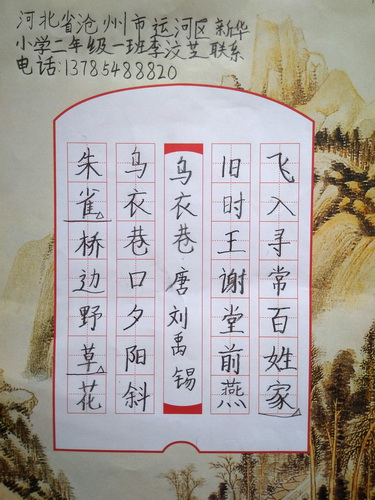 河北省沧州市运河区新华
小学二年级一班李汶芝联系
电话:13785488820
朱雀桥边野草花
乌衣巷口夕阳斜
乌衣巷 唐 刘禹锡
旧时王谢堂前燕
飞入寻常百姓家